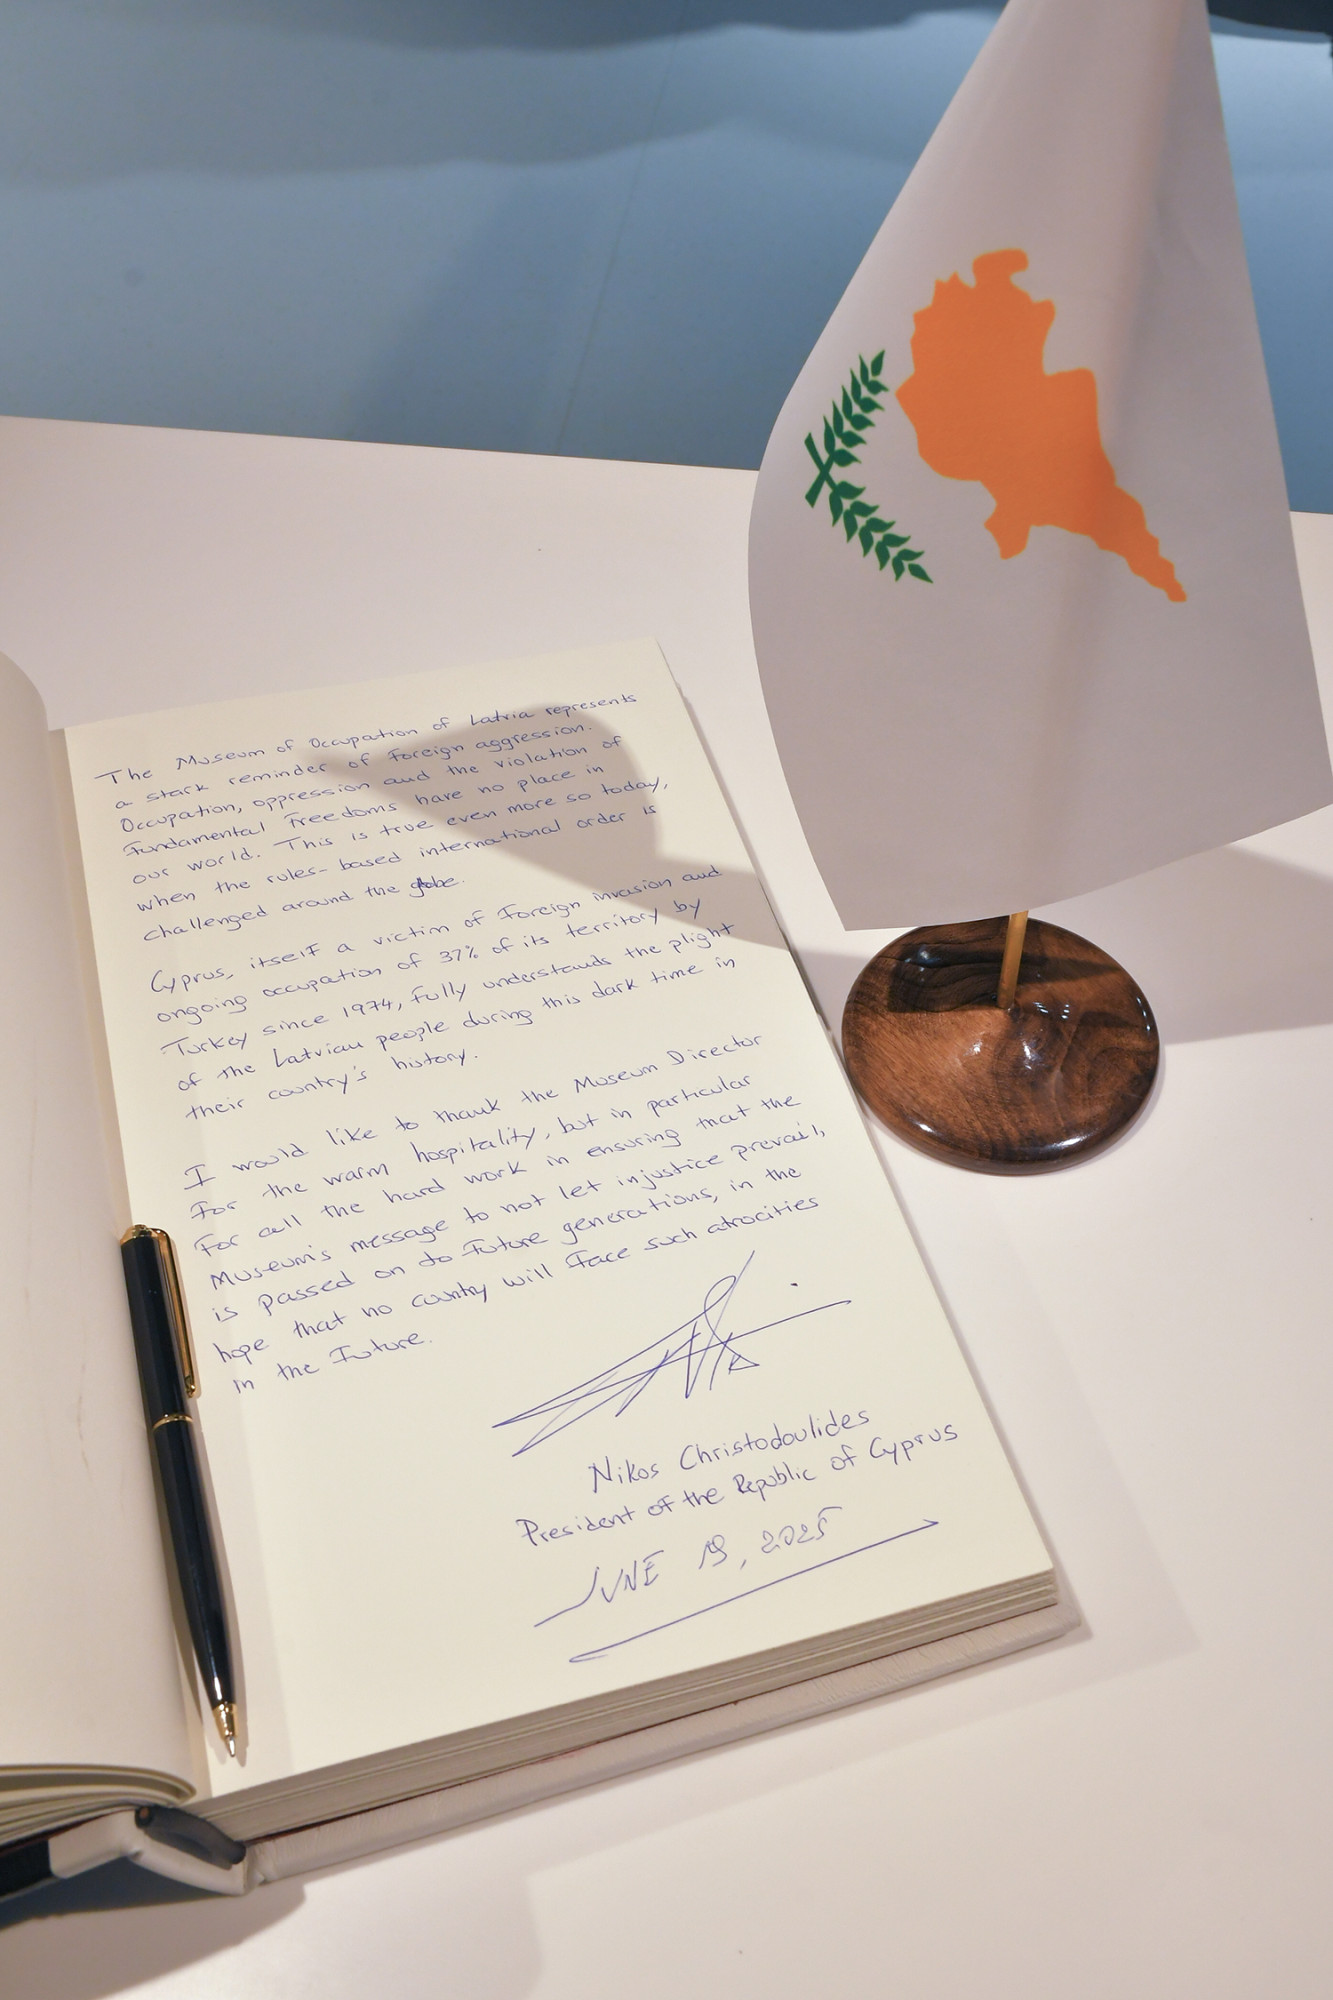 The Museum of Occupation of Latvia represents
a stark reminder of Foreign aggression.
Occupation, oppression and the violation of
Fundamental Freedoms have no place in
our world. This is true even more so today,
when the rules-based international order is
challenged around the globe.
Cyprus, itself a victim of Foreign invasion and
ongoing occupation of 37% of its territory by
Turkey since 1974, fully understands the plight
of the Latvian people during this dark time in
their country's history.
I would like to thank the Museum Director
For the warm hospitality, but in particular
For all the hard work in ensuring that the
Museum's message to not let injustice prevail,
is passed on to future generations, in the
hope that no country will face such atrocities
in the Future.
Nikos Christodoulides
President of the Republic of Cyprus
JUNE 19, 2025